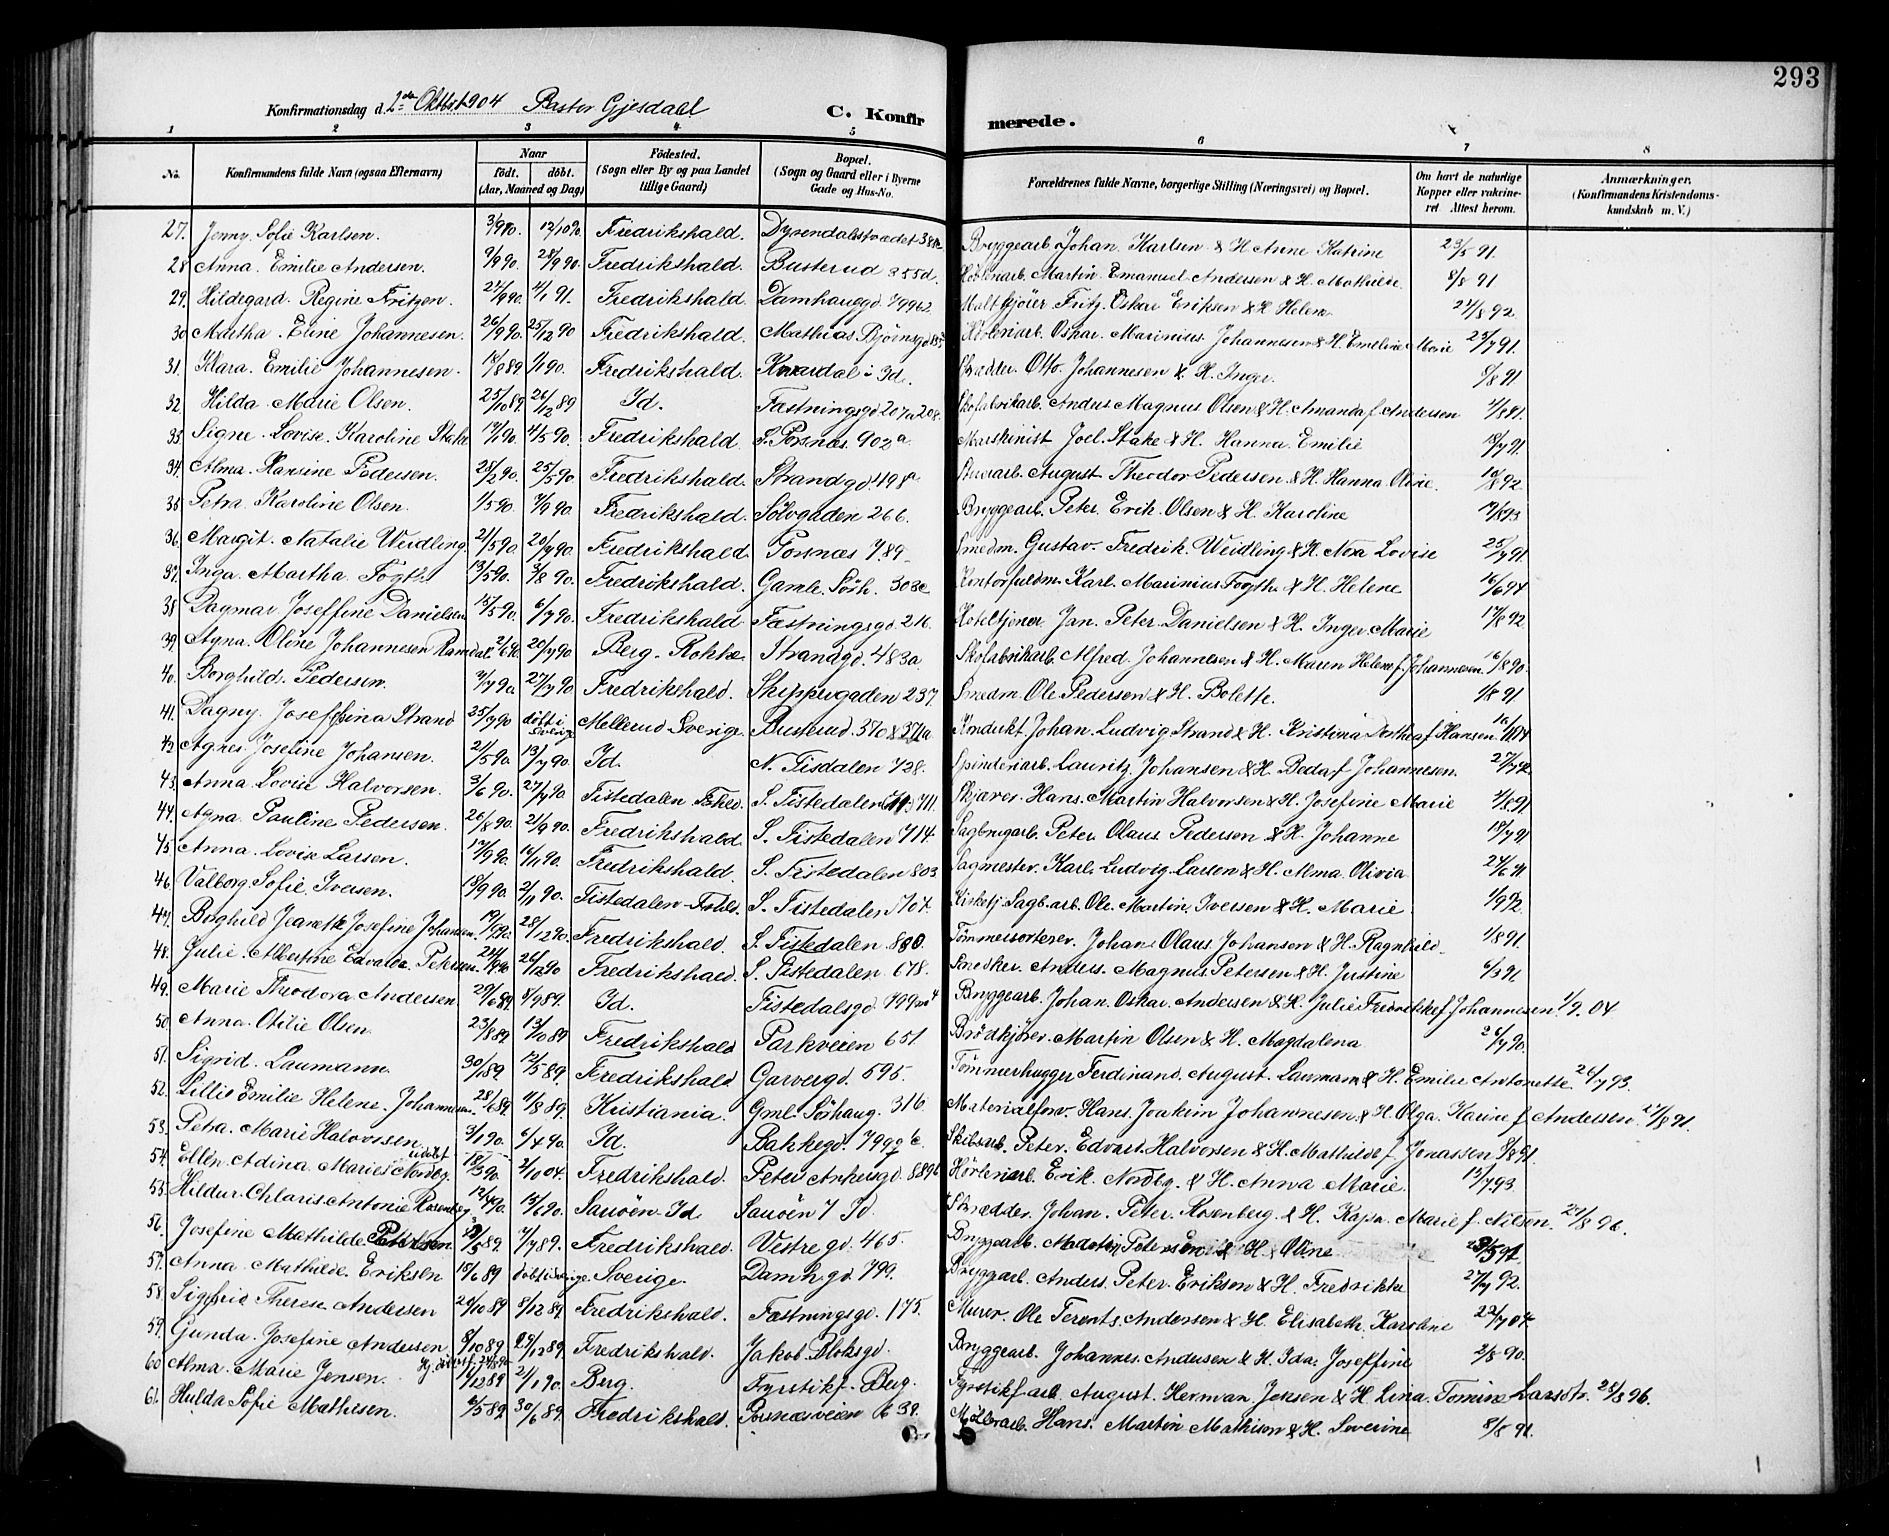 293
Konfirmationsdag d. 2den Oktbr. 1904 Pastor Gjesdahl C. Konfirmerede.
1 2 3 4 5 6 7 8
No. Konfirmandens fulde Navn (ogsaa Efternavn) Naar født. døbt. (Aar, Maaned og Dag) Fødested. (Sogn eller By og paa Landet tillige Gaard) Bopæl. (Sogn og Gaard eller i Byerne Gade og Hus-No. Forældrenes fulde Navne, borgerlige Stilling (Næringsvei) og Bopæl. Om havt de naturlige Kopper eller vakcineret Attest herom. Anmærkninger. (Konfirmandens Kristendomskundskab m. V.)
27. Jenny Sofie Karlsen. 12/10 90 Fredrikshald. Bryggearb. Johan Karlsen & H. Anne Katrine 23/5 91.
28 Anna Emilie Andersen. Fredrikshald. Busterud 355d. Martin Emanuel Andersen & H. Mathilde 8/8 91
29. Hildegard Regine Fritzen. 4/1 91. Fredrikshald. Damhaugd. 799 Fritz Oskar Eriksen & H. Helene
30 Martha Eline Johannesen. 26/9 90. 25/12 90 Fredrikshald. Mathias Bjørnsgd Oskar Marinius Johannesen & H. Emeline Marie 25/7 91.
31. Klara Emilie Johannesen. 18/8 89 1/1 90. Fredrikshald. i Id. Skrædder Otto Johannesen & H. Inger. 91
32. Hilda Marie Olsen. 25/10 89. 26/12 89 Id. Fæstningsgd 207 a 208. Skofabrikarb. Anders Magnus Olsen & H. Amanda f. Andersen
33. Signe Lovise Karoline Stake 4/5 90. Fredrikshald S. Porsnæs 902a Maskinist Joel Stake & H. Hanna Emilie 18/7 91.
34. Alma Pedersen. 25/2 90. 25/5 90 Fredrikshald. Strandgd 498a August Theodor Pedersen & H. Hanna Oline.
35 Petra Karoline Olsen. 1/5 90. 7/9 90. Fredrikshald. Sølvgaden 266. Bryggearb. Peter Erik Olsen & H. Karoline
36. Margit Natalie Weidling. 21/5 90. 20/7 90. Fredrikshald Porsnæs 789 Smedm. Gustav Fredrik Weidling & H. Lovise 25/7 91.
37. Inga Martha Fogth. 13/5 90. 3/8 90. Fredrikshald. Gamle Sørh. 303c Kontorfuldm. Karl Marinius Fogth & H. Helene 16/6 94
38 Dagmar Joseffine Danielsen 15/5 90. 6/7 90. Fredrikshald Fæstningsgd 216. Hoteltjener Jan Peter Danielsen & H. Inger Marie 17/8 92
39. Agna Oline Johannesen Ramdal 20/7 90 Berg-Rokke Strandgd. 483a. Skofabrikarb. Alfred Johannesen & H. Maren Helene f. Johannesen 16/8 90.
40. Borghild Pedersen. 27/7 90 Fredrikshald. Skippergaden 237. Smedm. Ole Pedersen & H. Bolette. 1/8 91.
41. Dagny Joseffina Strand 25/7 90 døbt i Sverige Mellerud Sverige. Busterud 370 & 371a Kondukt. Johan Ludvig Strand & H. Kristina Dorthea f. Hansen.
42 Agnes Josefine Johansen. 21/5 90. 13/7 90. Id. N. Tisdalen 728. Spinderiarb. Lauritz Johansen & H. Beda f. Johannesen.
43. Anna Lovise Halvorsen. 3/6 90. 27/7 90 Tistedalen Fhld. S. Tistedalen 711. Hans Martin Halvorsen & H. Josefine Marie 91.
44. Agna Pauline Pedersen. 26/8 90. 21/9 90. Fredrikshald. S. Tistedalen 714. Sagbrugarb. Peter Olaus Pedersen & H. Johanne 18/7 91
45 Anna Lovise Larsen. 90. Fredrikshald. S. Tistedalen 803 Sagmester Karl Ludvig Larsen & H. Alma Olivia
46. Valborg Sofie Iversen. 18/9 90. 2/11 90. Tistedalen-Fhld. S. Tistedalen Sagb.arb. Ole Martin Iversen & H. Marie. 1/9 92.
47. Borghild Jeanette Josefine Johansen. 28/12 90. Fredrikshald. S. Tistedalen 880. Tømmersorterer Johan Olaus Johansen & H. Ragnhild 1/8 91.
48. Julie Albertine Edvalda Petersen 26/12 90 Fredrikshald S. Tistedalen 678. Snedker Anders Magnus Petersen & H. Justine 6/3 91
49. Marie Theodora Andersen 29/6 89. 8/9 89. Id. Tistedalsgd 799 Bryggearb. Johan Oskar Andersen & H. Julie Fredrikke f. Johannesen 1/9. 04.
50. Anna Otilie Olsen. 23/8 89. 13/10 89 Fredrikshald Parkveien 651. Brødkjører Martin Olsen & H. Magdalena 26/7 90.
51. Sigrid Laumann. 30/1 89. 12/5 89. Fredrikshald Garvergd. 595. Tømmerhugger Ferdinand August Laumann & H. Emilie Antonette. 26/7 93.
52. Lillie Emilie Helene Johannesen 28/6 89. 11/8 89. Kristiania. Gml. Sørhaug. 316. Materialforv. Hans Joakim Johannesen & H. Olga Karine f. Andersen 27/8 91.
53. Petra Marie Halvorsen 3/1 90. 6/4 90. Id. Bakkegd. 799 Skibsarb. Peter Edvard Halvorsen & H. Mathilde f. Jonassen 8/8 91.
54. Ellen Adina Marie Nordby. 18/3 90. 2/10 04. Fredrikshald. Peter Ankersgd. 889 Erik Nordby & H. Anna Marie. 15/7 93.
55. Hildur Chlaris Antonie Rosenberg 12/4 90. 15/6 90. Sauøen-Id Sauøen 7 Id. Skrædder Johan Peter Rosenberg & H. Kaja Marie f. Nilsen.
56. Josefine Mathilde Petersen. 7/7 89. Fredrikshald. Vestregd. 465. Bryggearb. Petersen & H. Oline
57. Anna Mathilde Eriksen 15/6 89 døbt i Sverige. Sverige. Damh.gd 799. Bryggarb. Anders Peter Eriksen & H. Fredrikke 27/7 92.
58. Sigfrid Therese Andersen 24/10 89 8/12 89. Fredrikshald. Fæstningsgd. 175. Murer Ole Terents Andersen & H. Elisabeth Karoline 22/7 04.
59. Gunda Josefine Andersen 8/10 89 /12 89. Fredrikshald. Jakob Bloksgd. Bryggearb. Johannes Andersen & H. Ida Joseffine 2/8 90.
60 Alma Marie Jensen. 2/1 90. Berg. Fyrstikf. Berg. Fyrstikf.arb. August Herman Jensen & H. Lina Tomine Larsdtr. 25/8 96.
61. Hulda Sofie Mathisen. 6/5 89. 30/6 89. Fredrikshald Porsnæsveien Hans Martin Mathisen & H. Severine 8/8 91.